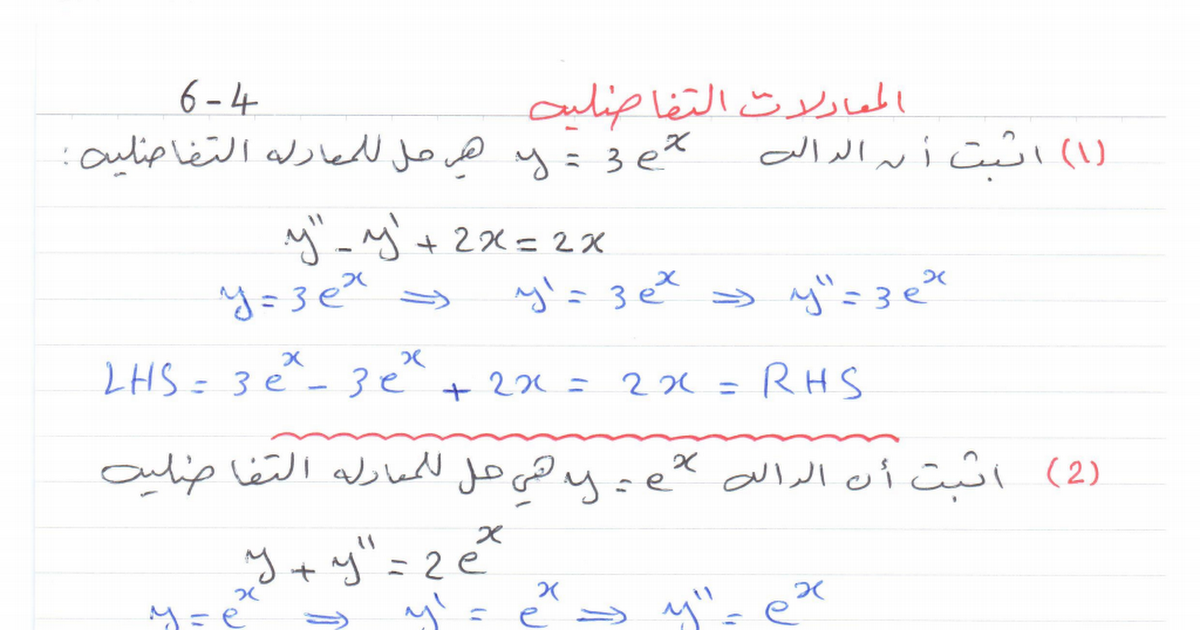 المعادلات التفاضليه 6-4
(1) اثبت أن الداله y = 3e^x هي حل للمعادله التفاضليه :
y'' - y' + 2x = 2x
y = 3e^x ⇒ y' = 3e^x ⇒ y'' = 3e^x
LHS = 3e^x - 3e^x + 2x = 2x = RHS
(2) اثبت أن الداله y = e^x هي حل للمعادله التفاضليه
y + y'' = 2e^x
y = e^x ⇒ y' = e^x ⇒ y'' = e^x